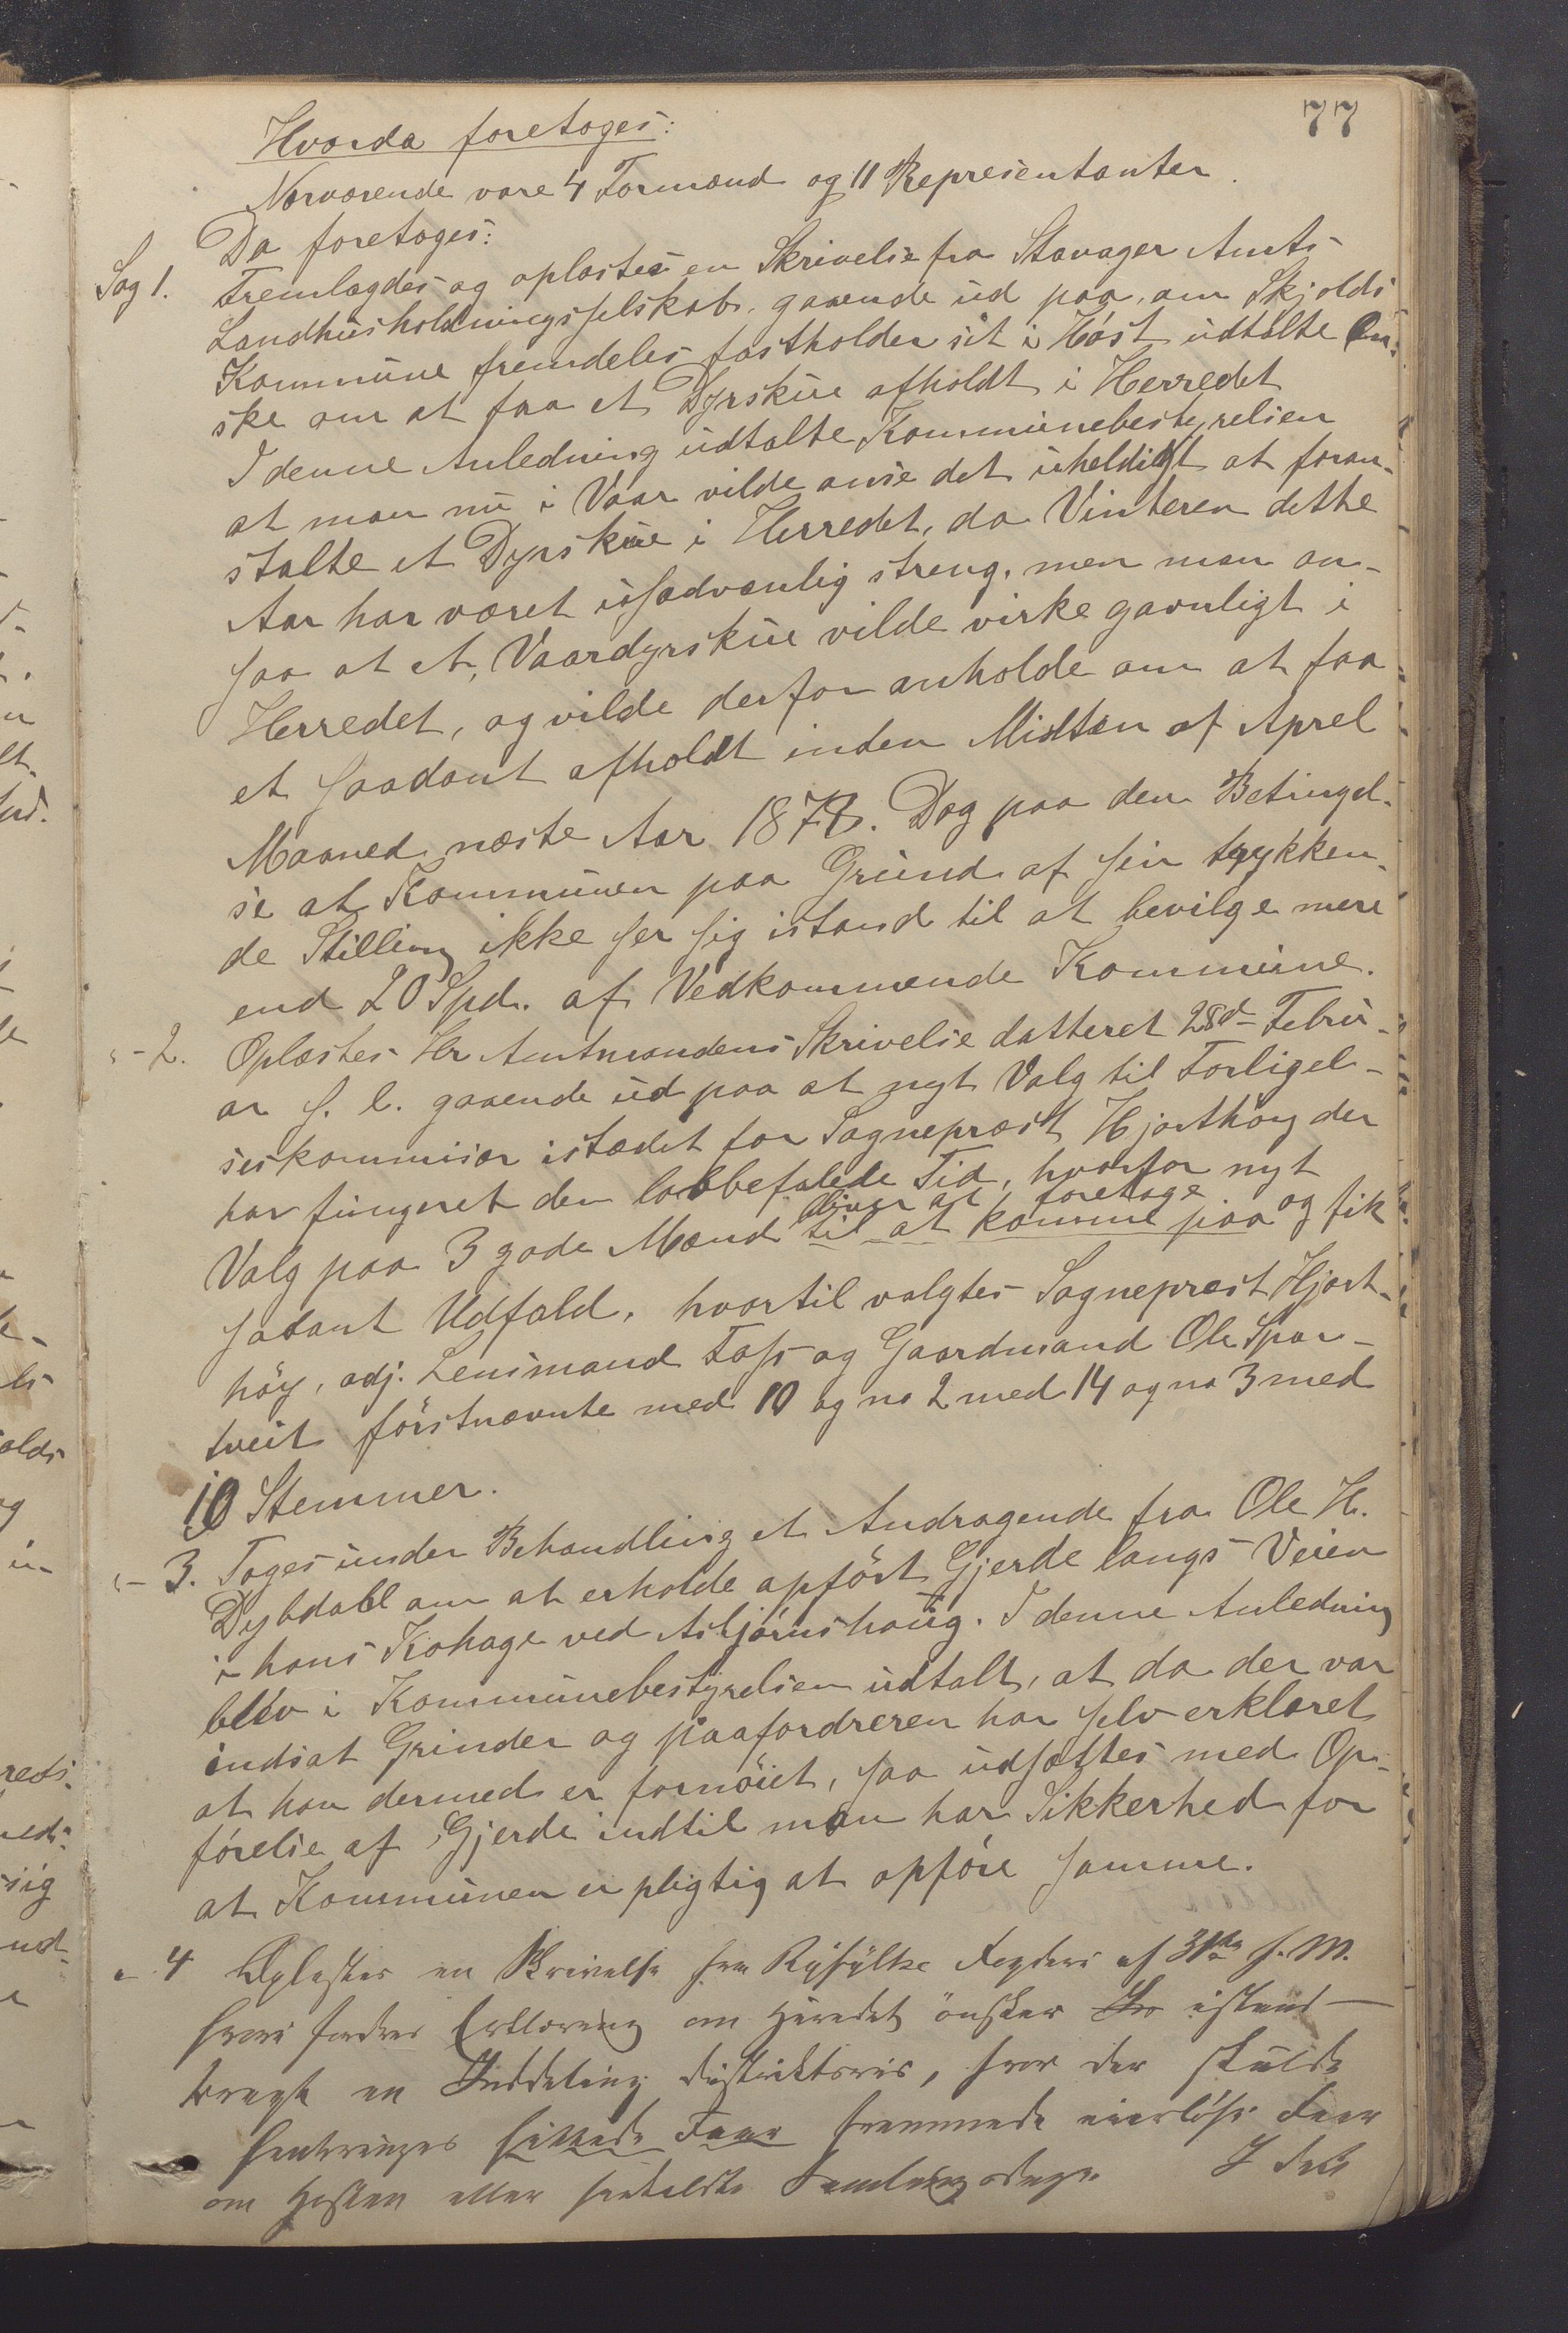 77
Hvorda foretoges:
Nærværende vare 4 Formænd og 11 Repræsentanter.
Da foretoges:
Sag 1. Fremlagdes og oplæstes en Skrivelse fra Stavager Amts
Landhusholdningsselskab, gaaende ud paa, om Skjolds
Kommune fremdeles fastholder sit i Høst udtalte Øn-
ske om at faa et Dyrskue afholdt i Herredet
I denne Anledning udtalte Kommunebestyrelsen
at man nu i Vaar vilde anse det uheldigt at foran-
stalte et Dyrskue i Herredet, da Vinteren dette
Aar har været usædvanlig streng, men man an-
saa at et Vaardyrskue vilde virke gavnligt i
Herredet, og vilde derfor anholde om at faa
et saadant afholdt inden Midten af Aprel
Maaned næste Aar 1878. Dog paa den Betingel-
se at Kommunen paa Grund af sin trykken-
de Stilling ikke ser sig istand til at bevilge mere
end 20 Spd. af Vedkommende Kommune.
" - 2. Oplæstes Hr Amtmandens Skrivelse datteret 28de Febru-
ar s. l. gaaende ud paa at nyt Valg til Forligel-
seskommisær istædet for Sogneprest Hjorthøy der
har fungeret den lovbefalede Tid, hvorfor nyt
bliver at foretage.
Valg paa 3 gode Mænd til at komme paa og fik
sadant Udfald, hvortil valgtes Sogneprest Hjort-
höy, adj. Lensmand Foss og Gaardmand Ole Spor-
tveit förstnævnte med 10 og no 2 med 14 og no 3 med
10 Stemmer.
" - 3. Toges under Behandling et Andragende fra Ole H.
Dybdahl om at erholde opfört Gjerde langs Veien
i hans Kohage ved Asbjørnshaug. I denne Anledning
blev i Kommunebestyrelsen udtalt, at da der var
indsat Grinder og paafordreren har selv erklæret
at han dermed er fornöiet, saa udsattes med Op-
førelse af Gjerde indtil man har Sikkerhed for
at Kommunen er pligtig at opføre samme.
" 4 Oplæstes en Skrivelse fra Ryfylke Fogderi af 31te f. M.
hvori fordres Erklæring om Herredet önsker istand-
bragt en Inddeling distriktsvis, hvor der skulde
henbringes fremmede eierløse Faar
om Hösten eller Samlingsdage. I